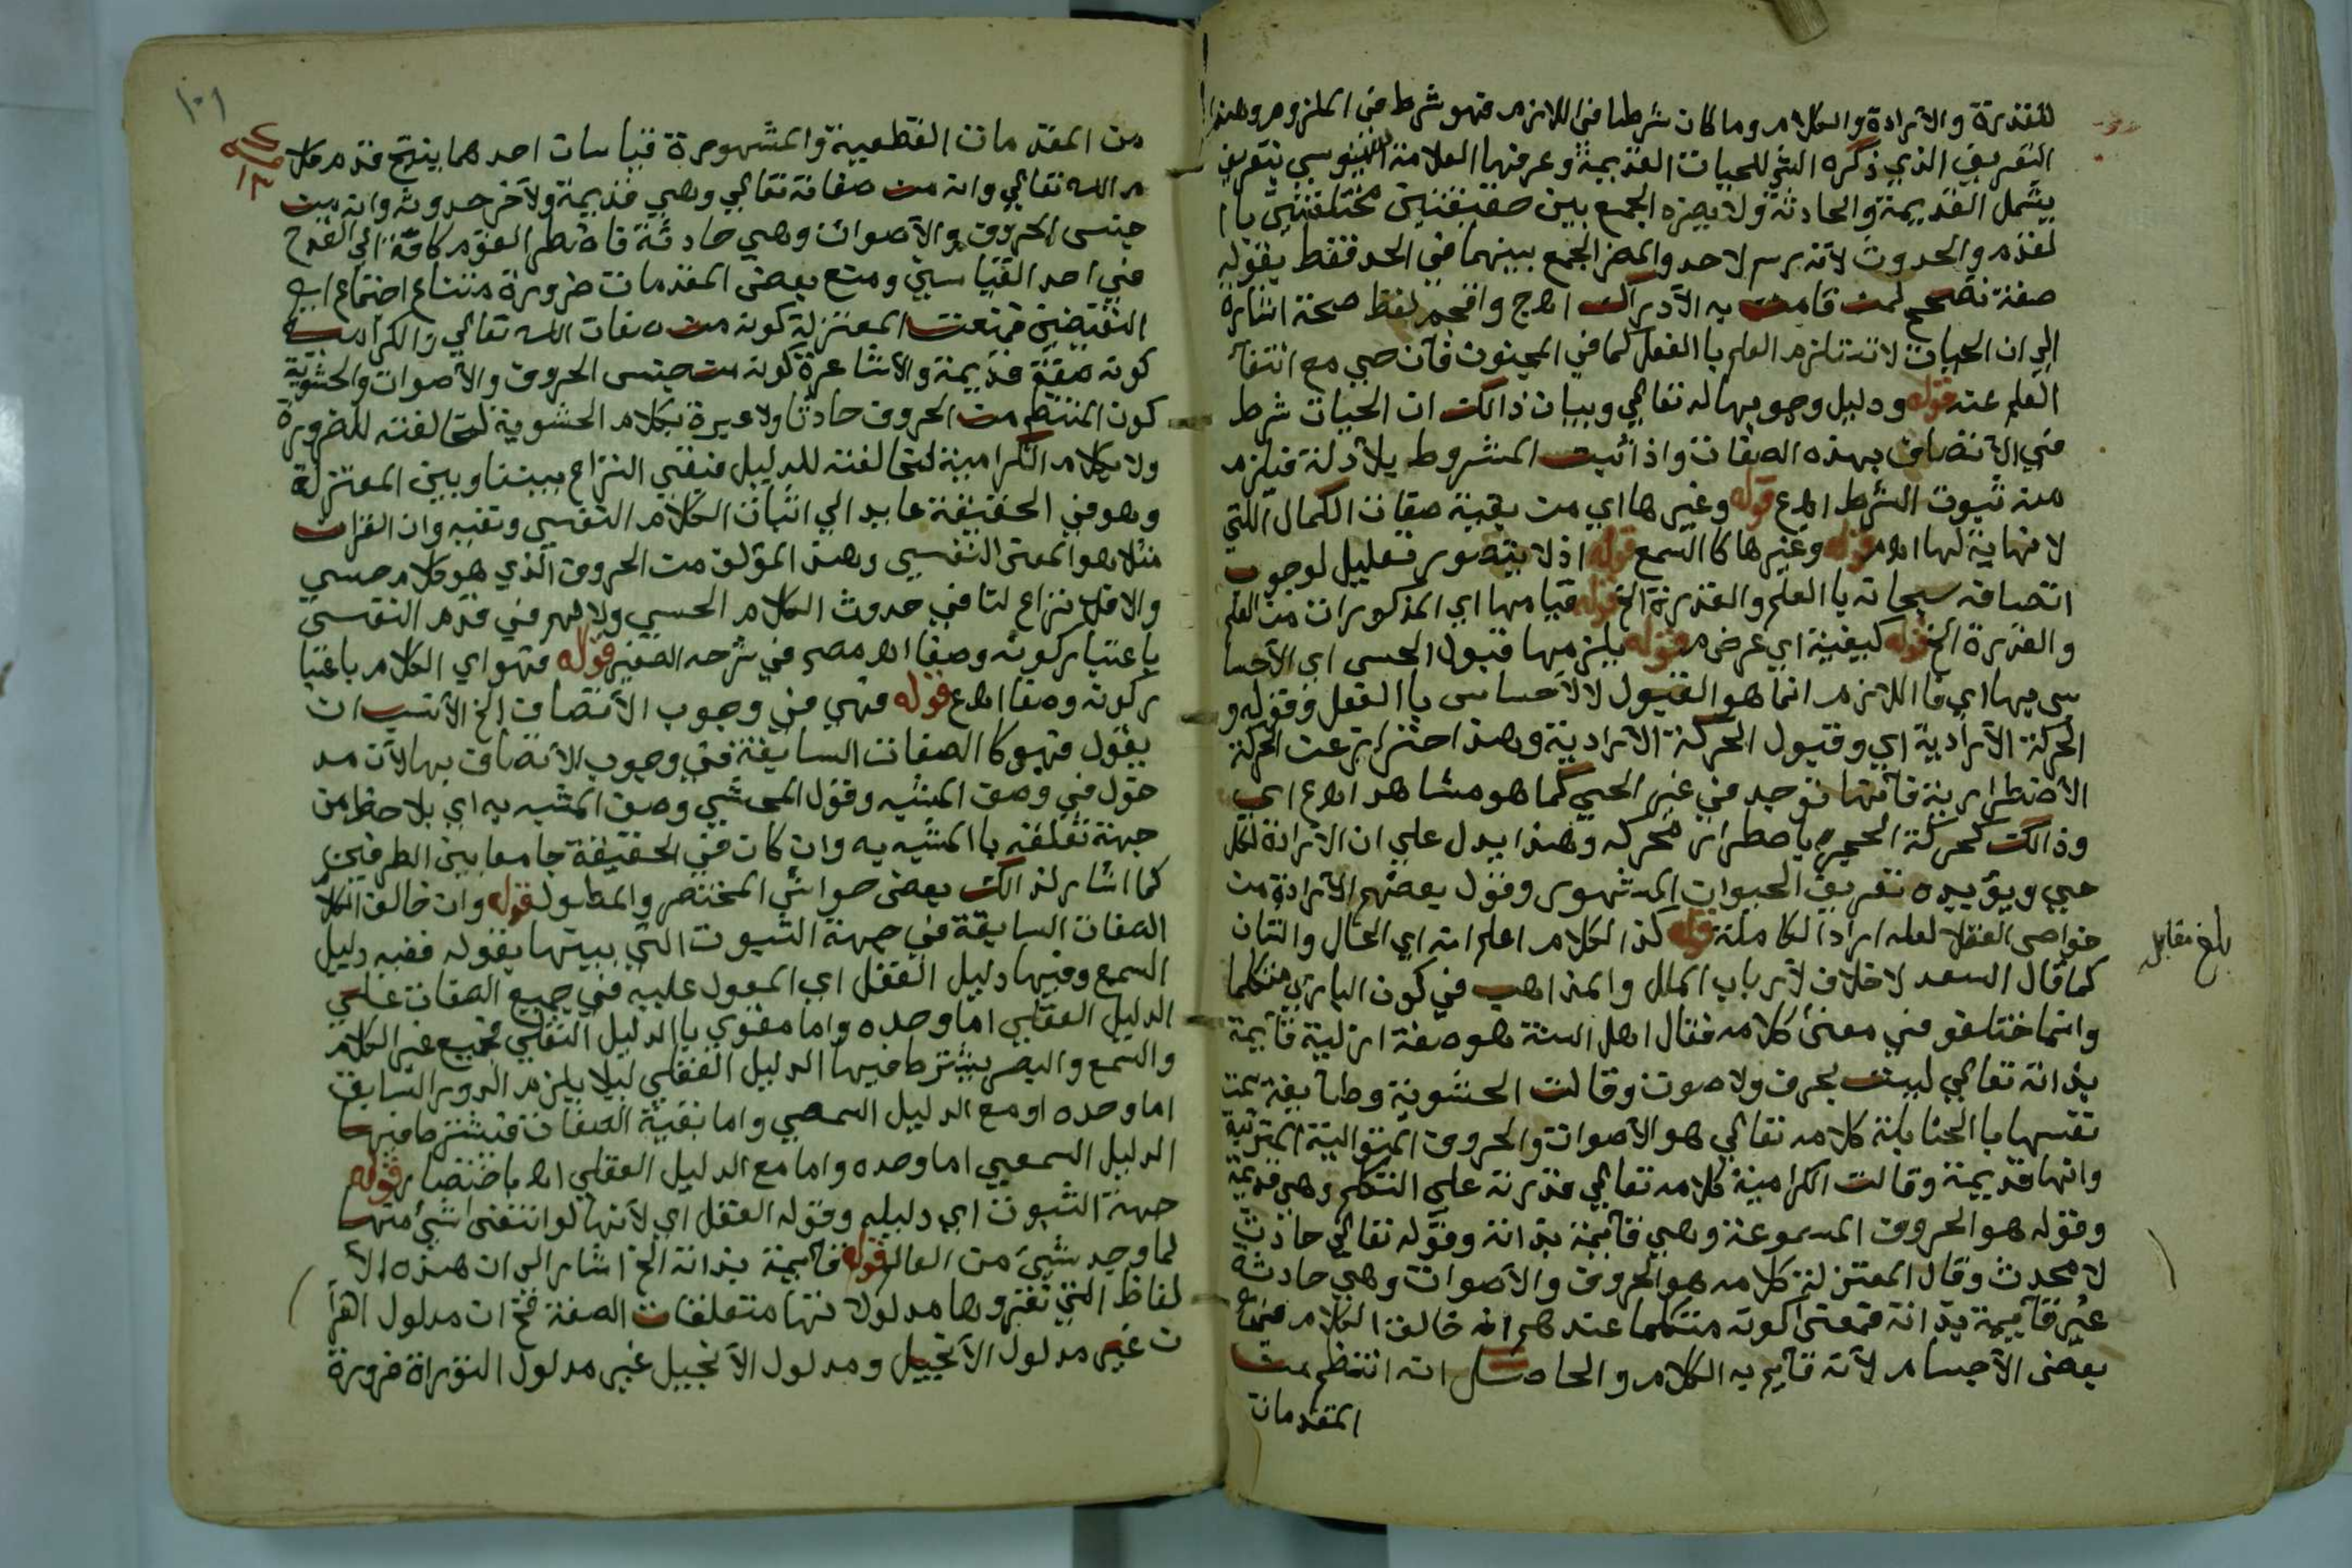 للقدرة والارادة والكلام وما كان شرطا في اللازم فهو شرط في الملزوم وهذا
التعريف الذي ذكره الش للحيات القديمة وعرفها العلامة السنوسي بتعريف
يشمل القديمة والحادثة ولا يضره الجمع بين حقيقتين مختلفتين با
لقدم والحدوث لانه رسم لا حد والمضر الجمع بينهما في الحد فقط بقوله
صفة تصحح لمن قامت به الادراك اهج واقحم لفظ صحة اشارة
الى ان الحيات لا تستلزم العلم با الفعل كما في المجنون فأن حي مع انتفأ
العلم عنه قوله ودليل وجوبها له تعالي وبيان ذالك ان الحيات شرط
في الأتصاف بهذه الصفات واذا ثبت المشروط بلأدلة فيلزم
منه ثبوت الشرط اهع قوله وغيرها اي من بقية صفات الكمال اللتي
لا نهاية لها اهم قوله وغيرها كا السمع قوله اذ لا يتصور تعليل لوجوب
اتصافه سبحانه با العلم والقدرة الخ قوله قيامها اي المذكورات من العلم
والقدرة الخ قوله كيفية اي عرض م قوله يلزمها قبول الحس اي الأحسا
س بها اي فا اللازم انما هو القبول لا لأحساس با الفعل وقوله و
الحركة الأرادية اي وقبول الحركة الارادية وهذا احتراز عن الحركة
الأضطرارية فأنها توجد في غير الحي كما هو مشاهد اهع اي
وذالك كحركة الحجر باضطرار محركه وهذا يدل علي ان الارادة لكل
حي ويؤيده تعريف الحيوان المشهور وقول بعضهم الأرادة من
خواص العقلا لعله اراد الكاملة قوله كذا الكلام اعلم انه اي الحال والشان
كما قال السعد لا خلاف لأرباب الملل والمذاهب في كون الباري متكلما
وانما ختلفو في معنئ كلامه فقال اهل السنة هو صفة ازلية قأيمة
بذاته تعالي ليست بحرف ولا صوت وقالت الحشوية وطايفة سمت
نفسها با الحنابلة كلامه تعالي هو الأصوات والحروف المتوالية المترتبة
وانها قديمة وقالت الكرامية كلامه تعالي قدرته علي التكلم وهي قديمة
وقوله هو الحروف المسموعة وهي قأيمة بذاته وقوله تعالي حادث
لا محدث وقال المعتزلة كلامه هو الحروف والأصوات وهي حادثة
غير قأيمة بذاته فمعنى كونه متكلما عندهم انه خالف الكلام في
بعض الأجسام لأنه قأيم به الكلام والحاصل انه انتظم من
المقدمات
بلغ مقابلة
١٠١
من المقدمات القطعية والمشهورة قياسات احدهما ينتج قدم كلا
م الله تعالي وانه من صفاته تعالي وهي قديمة ولأخر حدوثه وانه من
جنس الحروف والأصوات وهي حادثة فاضطر القوم كافة الي القدح
في احد القياسين ومنع بعض المقدمات ضرورة متناع اجتماع ا
النقيضين فمنعت المعتزلة كونه من صفات الله تعالي والكرامية
كونه صفة قديمة والأشاعرة كونه من جنس الحروف والأصوات والحشوية
كون المنتظم من الحروف حادثا ولا عبرة بكلام الحشوية لمخالفته للضرورة
ولا بكلام الكرامية لمخالفته للدليل فبقي النزاع بيننا وبين المعتزلة
وهو في الحقيقة عايد الي اثبات الكلام النفسي ونفيه وان القران
مثلا هو المعنى النفسي وهذ المؤلف من الحروف الذي هو كلام حسي
والا فلا نزاع لنا في حدوث الكلام الحسي ولا لهم في قدم النفسي
باعتبار كونه وصفا اه مصر في شرحه الصغير قوله فهو اي الكلام باعتبا
ر كونه وصفا اهع قوله فهي في وجوب الأتصاف الخ الأنسب ان
يقول فهو كا الصفات السابقة في وجوب الأتصاف بها لأن مد
خول في وصف المشبه وقول المحشي وصف المشبه به اي بلاحظ من
جهة تعلقه با المشبه به وان كان في الحقيقة جامعا بين الطرفين
كما اشار لذالك بعض حواشي المختصر والمطول قوله وان خالف الكلا
الصفات السابقة في جهة الثبوت التي بينها بقوله ففيه دليل
السمع وفيها دليل العقل اي المعول عليه في جميع الصفات علي
الدليل العقلي اما وحده واما مقوي با الدليل النقلي فجميع غير الكلام
والسمع والبصر يشترط فيها الدليل العقلي ليلا يلزم الدور السابق
اما وحده او مع الدليل السمعي واما بقية الصفات فيشترط فيها
الدليل السمعيي اما وحده واما مع الدليل العقلي اه باختصار قوله
جهة الثبوت اي دليله وقوله العقل اي لأنها لو انتفى شئ منها
لما وجد شئ من العالم قوله قأيمة بذاته الخ اشار الى ان هذه الأ
لفاظ التي تقروها مدلولاتها متعلقات الصفة فح ان مدلول القرأ
ن غير مدلول الأنجيل ومدلول الأنجيل غير مدلول التوراة ضرورة